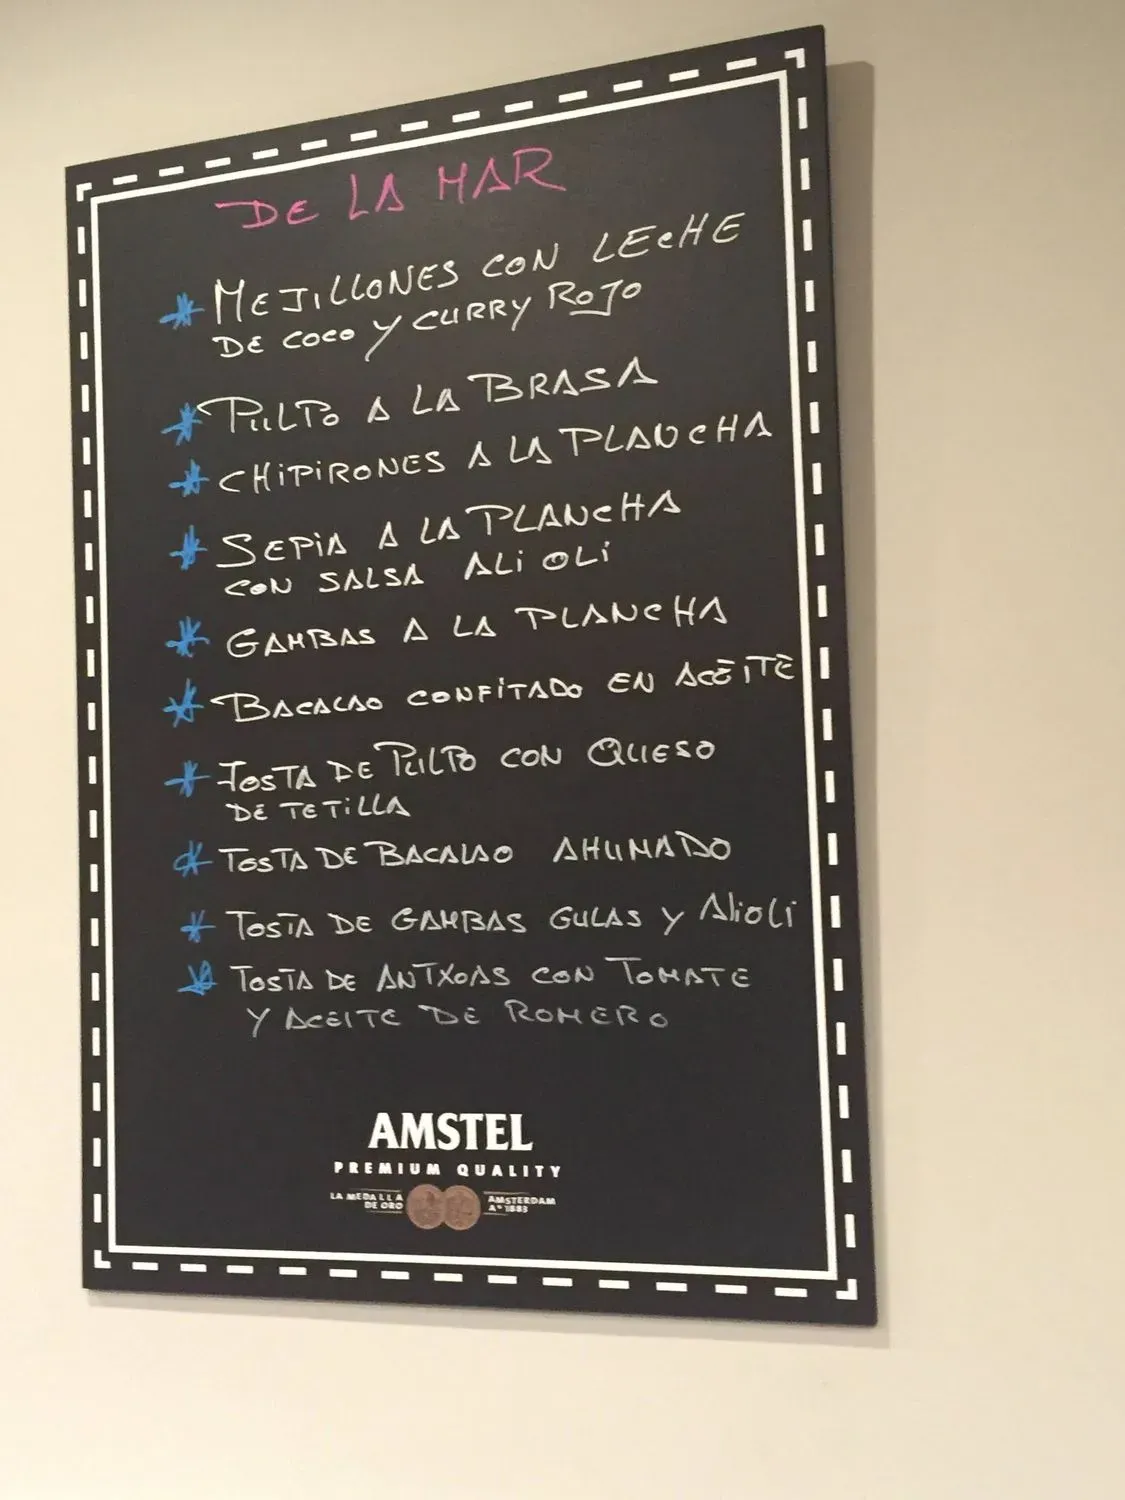 DE LA MAR
* MEJILLONES CON LECHE
DE COCO Y CURRY ROJO
* PULPO A LA BRASA
* CHIPIRONES A LA PLANCHA
* SEPIA A LA PLANCHA
CON SALSA ALI OLI
* GAMBAS A LA PLANCHA
* BACALAO CONFITADO EN ACEITE
* TOSTA DE PULPO CON QUESO
DE TETILLA
* TOSTA DE BACALAO AHUMADO
* TOSTA DE GAMBAS GULAS Y AliOLi
* TOSTA DE ANTXOAS CON TOMATE
Y ACEITE DE ROMERO
AMSTEL
PREMIUM QUALITY
LA MEDALLA
DE ORO
AMSTERDAM
A° 1883